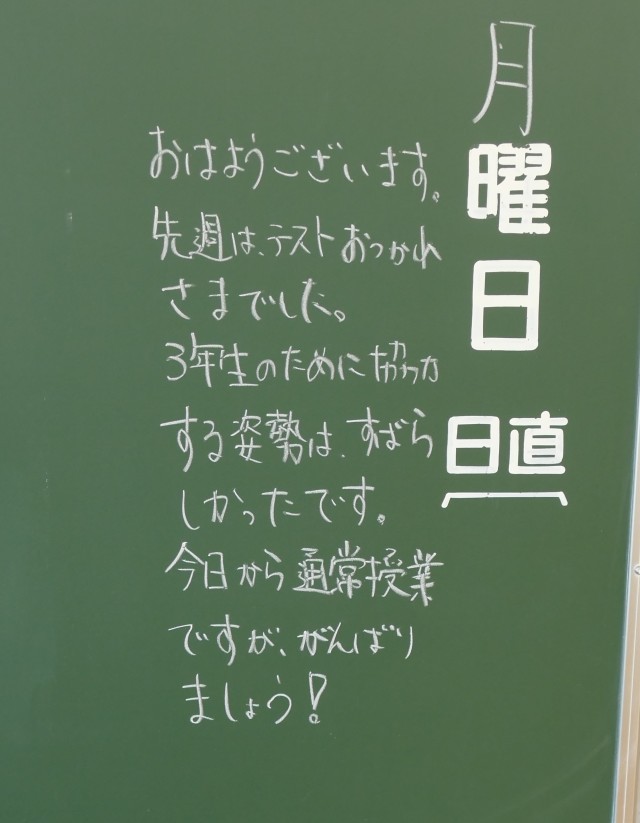 月曜日
日直
おはようございます。
先週は、テストおつかれ
さまでした。
3年生のために協力
する姿勢は、すばら
しかったです。
今日から通常授業
ですが、がんばり
ましょう!